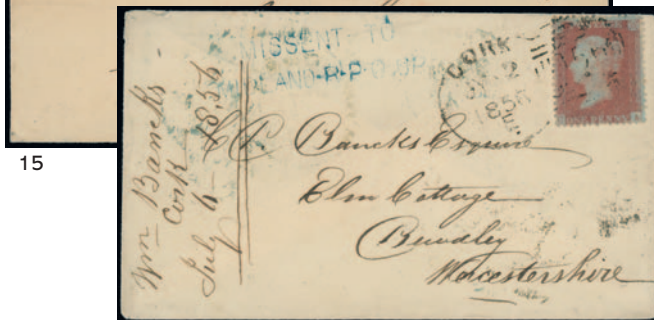 MISSENT-TO
AND-R-P-O-UP
CORK
2
1856
Wm Bancks
Cork
July 6 1856
P. Bancks Esquire
Elm Cottage
Bewdley
Worcestershire
15